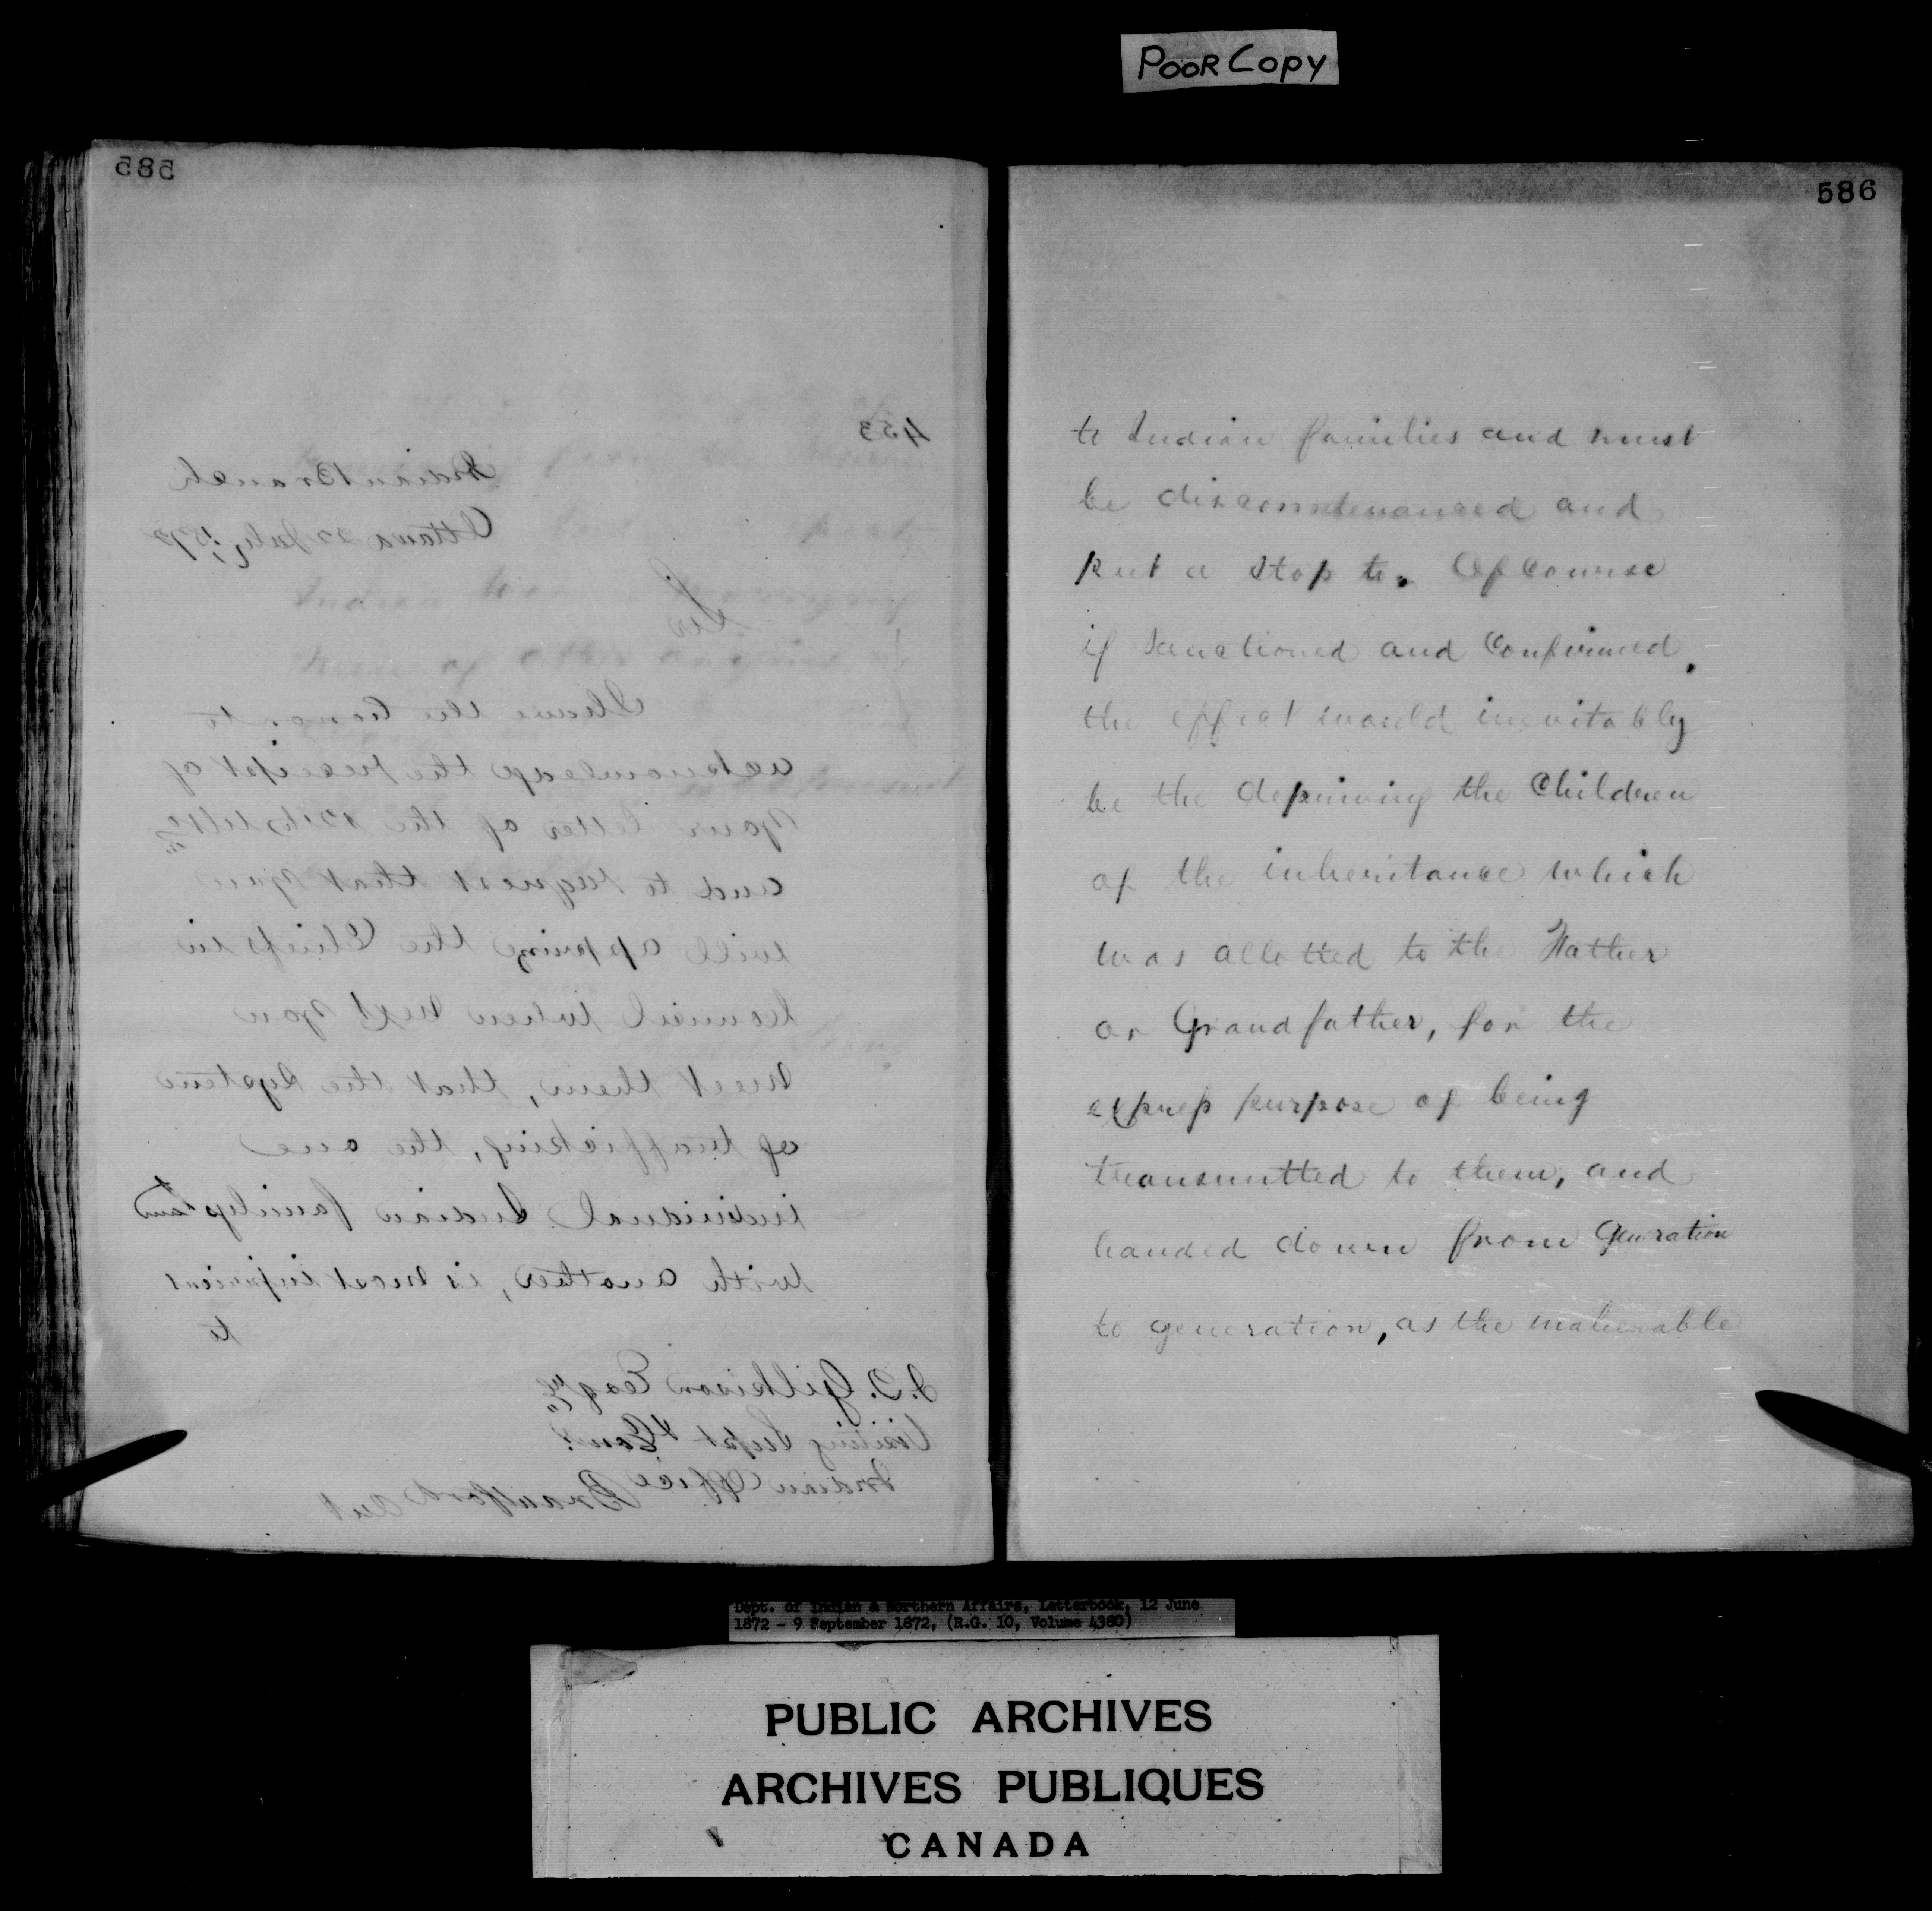 POOR COPY
585
453
Indian Branch
Ottawa 22 July, 1872
Sir
I have the honor to
acknowledge the receipt of
your letter of the 12th ulto
and to request that you
will apprize the Chiefs in
Council when next you
meet them, that the system
of trafficking, the one
individual Indian family's land
with another, is most injurious
to
J.T. Gilkison Esqre
Visiting Supt & Comr
Indian Office Brantford Ont
586
to Indian families and must
be discountenanced and
put a stop to. Of course
if sanctioned and confirmed,
the effect would inevitably
be the depriving the Children
of the inheritance which
was allotted to the Father
or Grandfather, for the
express purpose of being
transmitted to them, and
handed down from generation
to generation, as the inalienable
Dept. of Indian & Northern Affairs, Letterbook, 12 June
1872 - 9 September 1872, (R.G. 10, Volume 4380)
PUBLIC ARCHIVES
ARCHIVES PUBLIQUES
CANADA